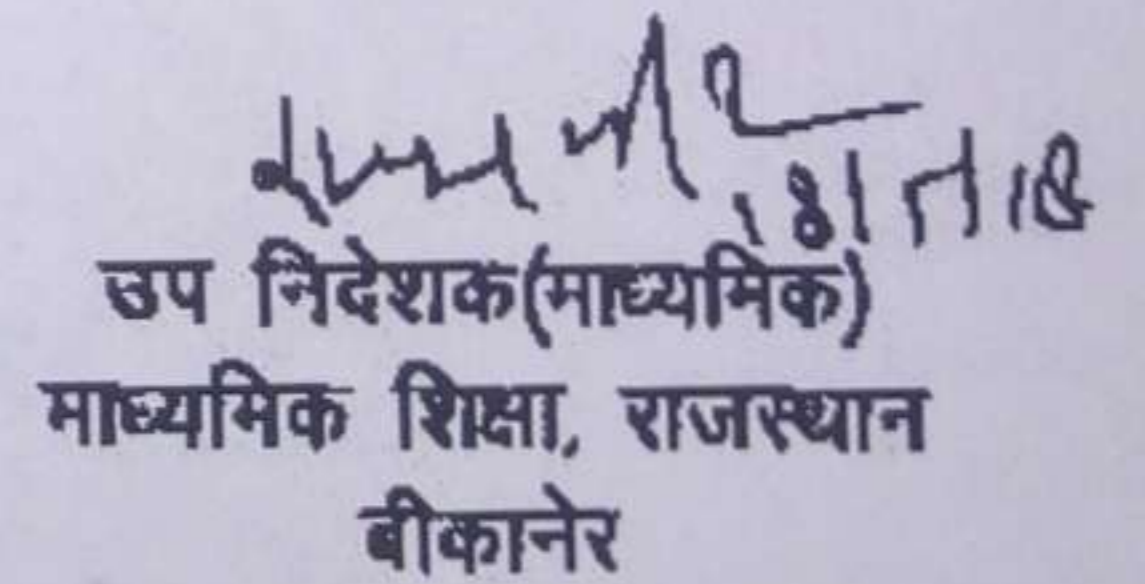 उप निदेशक(माध्यमिक)
माध्यमिक शिक्षा, राजस्थान
बीकानेर